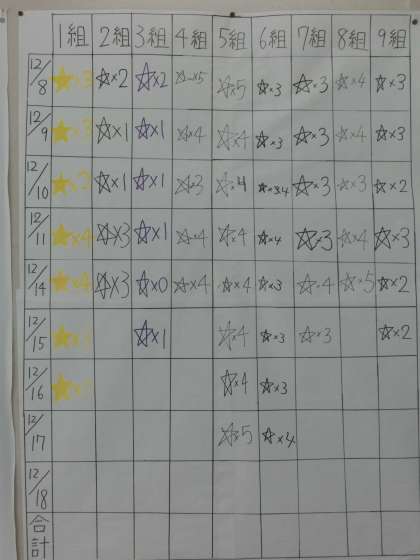 1組 2組 3組 4組 5組 6組 7組 8組 9組
12/8 ☆×3 ☆×2 ☆×2 ☆×5 ☆×5 ☆×3 ☆×3 ☆×4 ☆×3
12/9 ☆×3 ☆×1 ☆×1 ☆×4 ☆×4 ☆×3 ☆×3 ☆×4 ☆×3
12/10 ☆× ☆×1 ☆×1 ☆×3 ☆×4 ☆×3.4 ☆×3 ☆×3 ☆×2
12/11 ☆×4 ☆×3 ☆×1 ☆×4 ☆×4 ☆×4 ☆×3 ☆×4 ☆×3
12/14 ☆×4 ☆×3 ☆×0 ☆×4 ☆×4 ☆×3 ☆×4 ☆×5 ☆×2
12/15 ☆× ☆×1 ☆×4 ☆×3 ☆×3 ☆×2
12/16 ☆× ☆×4 ☆×3
12/17 ☆×5 ☆×4
12/18
合計